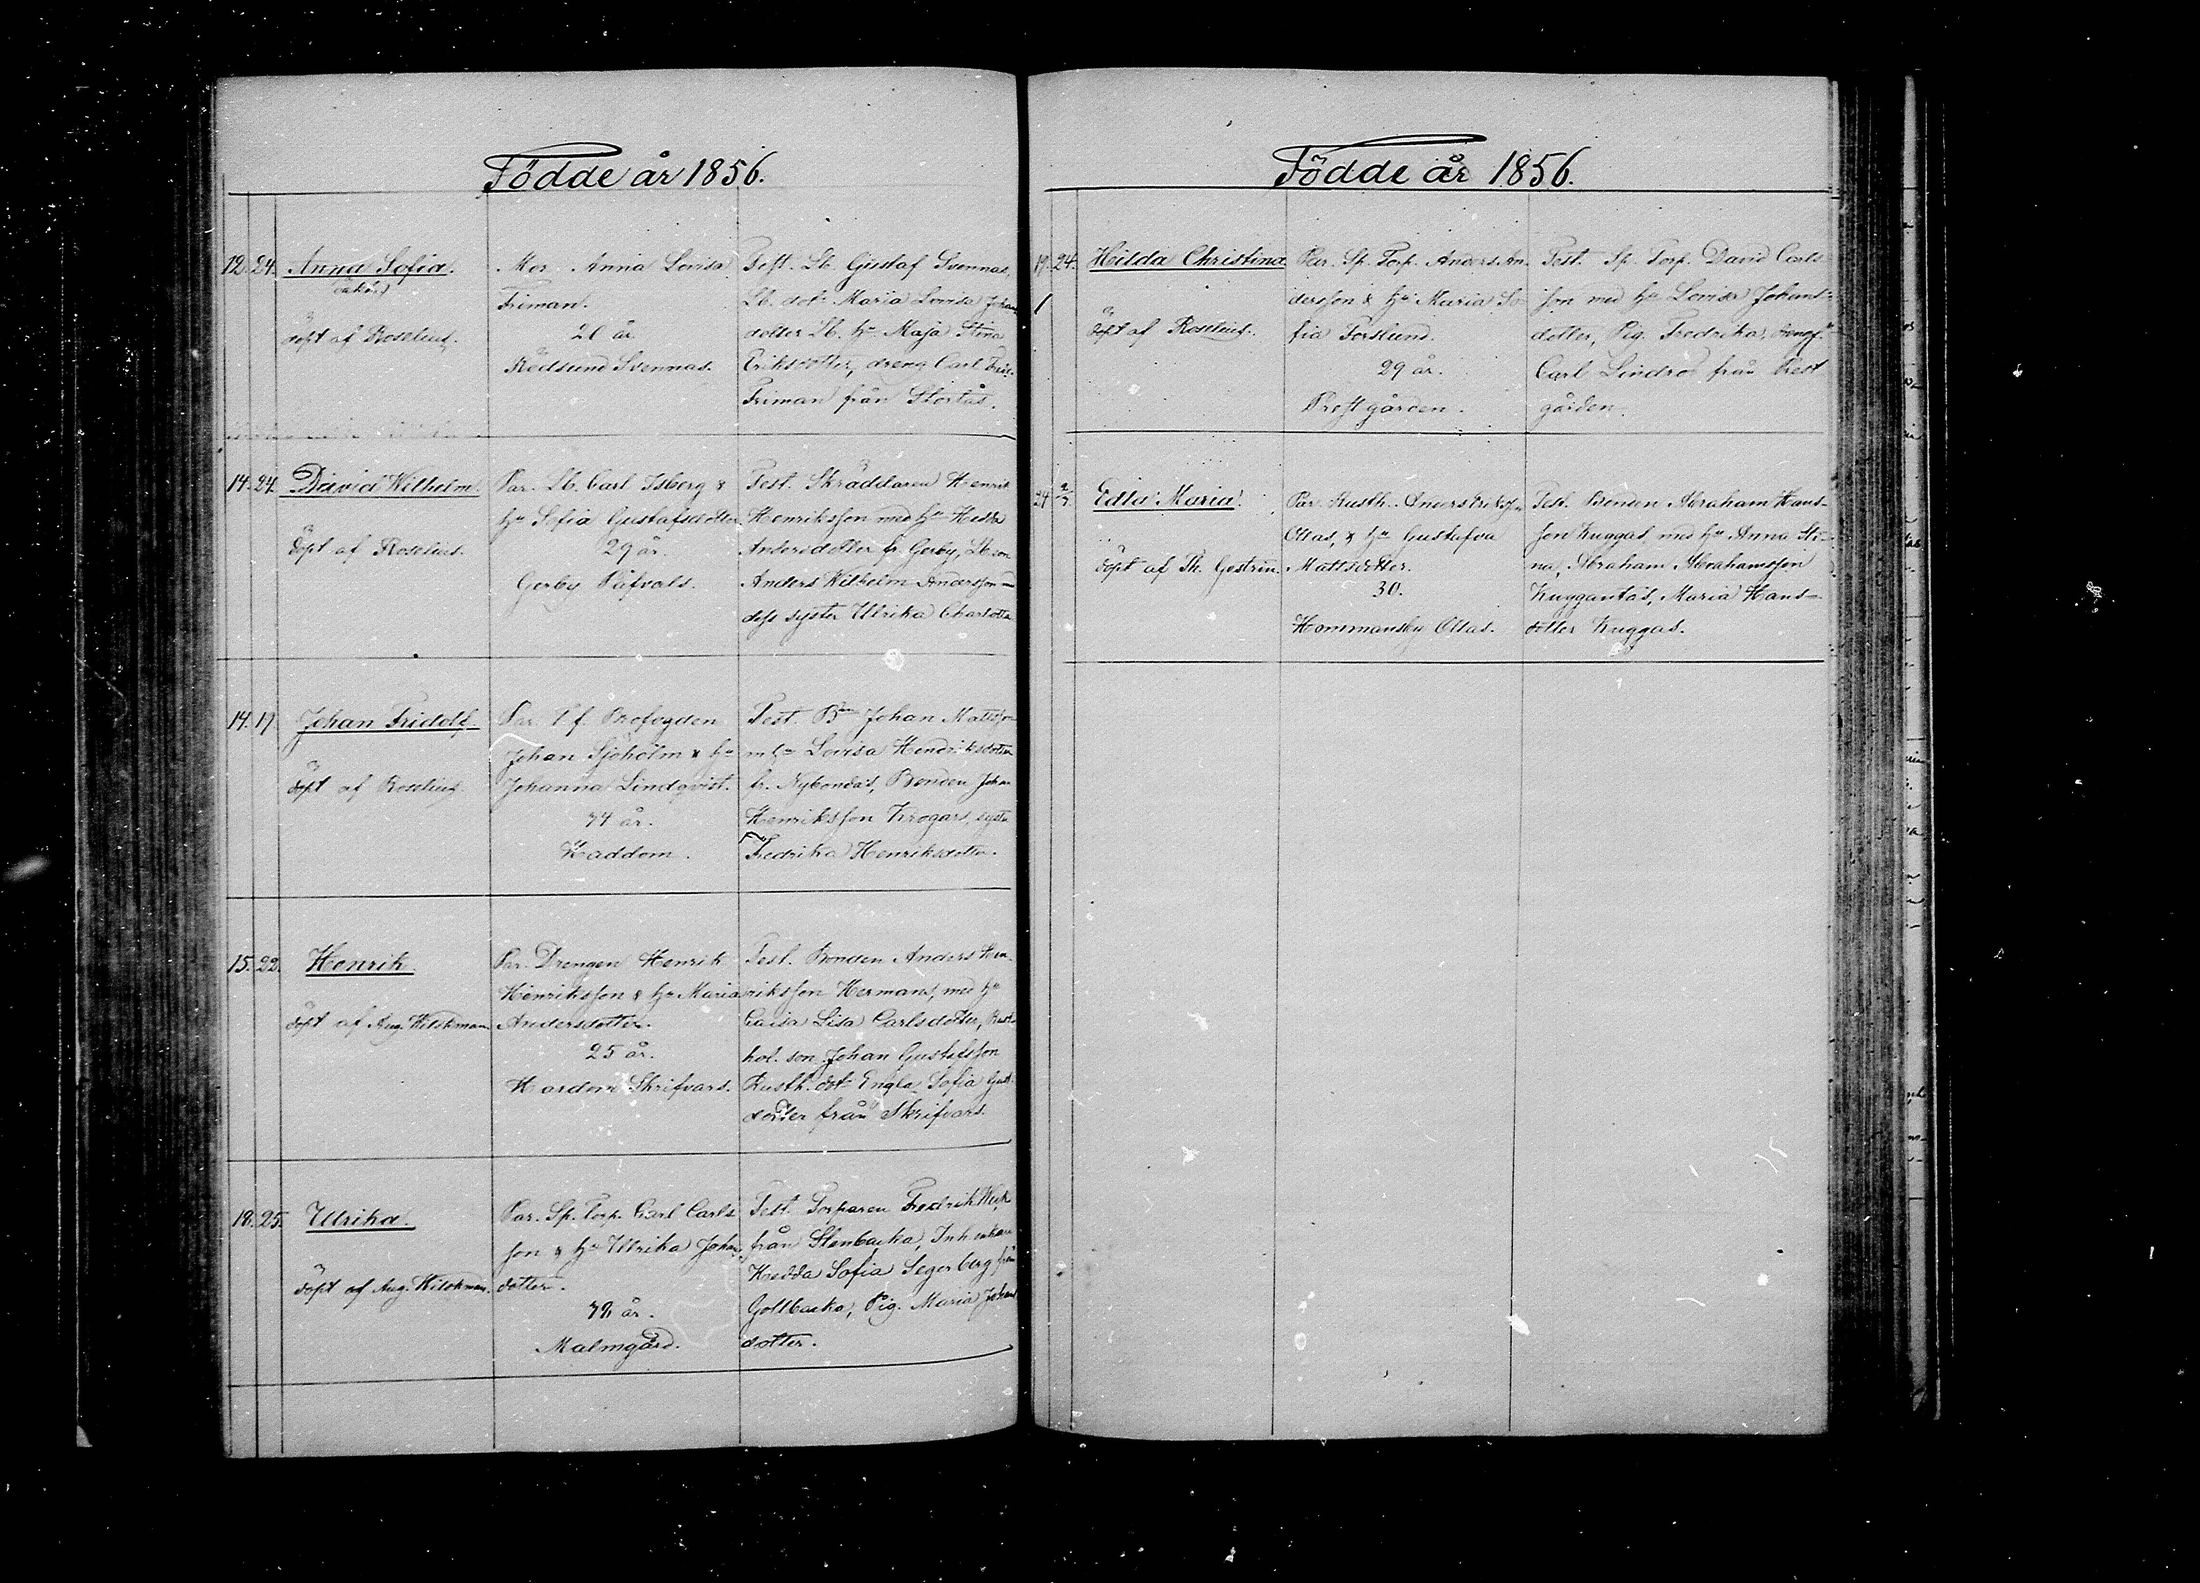 Födde år 1856.
12. 24. Anna Sofia.
(oäkta)
döpt af Roselius.
Mor Anna Lovisa
Friman.
Rödsund Svennas.
Test. Lb. Gustaf Svennas,
Lb. dotr Maria Lovisa Johans
dotter Lb. hu Maja Stina
Eriksdotter, dreng Carl
Friman från Stortås.
14. 24. David Wilhelm.
döpt af Roselius.
Par. Lb. Carl Isberg &
hu Sofia Gustafsdotter
29 år.
Gerby Påfvals.
Test. Skräddaren Henrik
Henriksson med hu Hedda
Andersdotter fr. Gerby, Lb son
Anders Wilhelm Andersson
dess syster Ulrika Charlotta
14. 19 Johan Fridolf
döpt af Roselius.
Par. Brofogden
Johan Sjöholm & hu
Johanna Lindqvist.
44 år.
Haddom.
Test. Bon Johan Mattsson
m hu Lovisa Hendriksdotter
fr. Nybondas, Bonden Johan
Henriksson Krogars, syste
Fredrika Henriksdotter.
15. 22. Henrik
döpt af Aug. Wilckman
Par. Drengen Henrik
Henriksson & hu Maria
Andersdotter.
25 år.
Hardom Skrifvars.
Test. Bonden Anders Hen
riksson Hermans, med hu
Caisa Lisa Carlsdotter, Rust
hol. son Johan Gustafsson
Rusth. dotr Engla Sofia Gust
dotter från Skrifvars.
18. 25. Ulrika.
döpt af Aug. Wilckman.
Par. Sp. Torp. Carl Carls
son & hu Ulrika Johans
dotter.
42 år.
Malmgård.
Test. Torparen Fredrik
från Stenbacka, Inh enkan
Hedda Sofia Segerberg från
Gollbacka, Pig. Maria Johans
dotter.
Födde år 1856.
19. 24. Hilda Christina
döpt af Roselius.
Par. Sp. Torp. Anders An
dersson & hu Maria So
fia Forslund.
29 år.
Prestgården.
Test. Sp. Torp. David Carls
son med hu Lovisa Johans-
dotter, Pig. Fredrika,
Carl Lindros från Prest
gården.
24 2/3 Edla Maria.
döpt af Th. Gestrin.
Par. Rusth. Anders Eriksson
Ollas, & hu Gustafva
Mattsdotter.
30.
Hommansby Ollas.
Test. Bonden Abraham Hans-
son Kuggas med hu Anna Sti-
na, Abraham Abrahamsson
Kuggantas, Maria Hans-
dotter Kuggas.